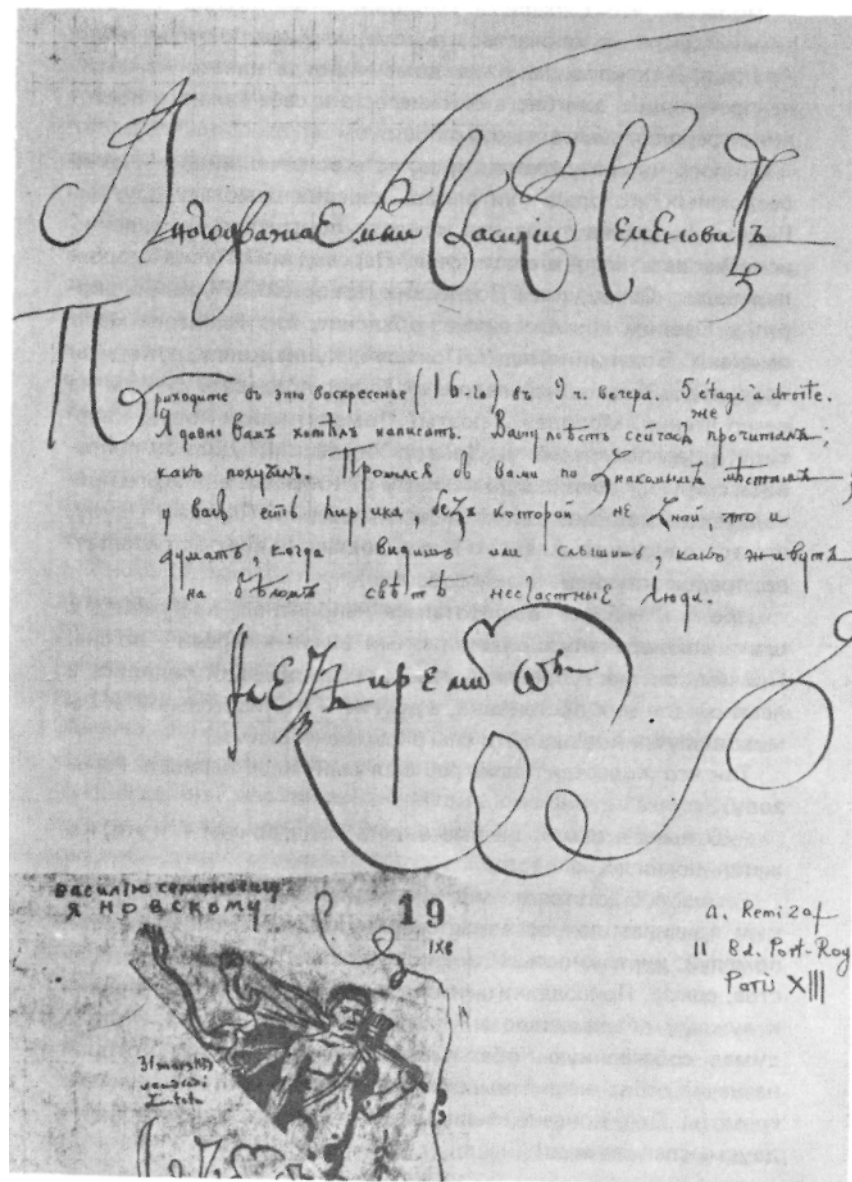 Многоуважаемый Василий Семеновичъ
Приходите въ это воскресенье (16-го) въ 9 ч. вечера. 5 étage à droite.
Я давно Вамъ хотѣлъ написать. Вашу повѣсть сейчасъ же прочиталъ,
какъ получилъ. Прошелся съ вами по знакомымъ мѣстамъ
у васъ есть лирика, безъ которой не знай, что и
думать, когда видишь или слышишь, какъ живутъ
на бѣломъ свѣтѣ несчастные люди.
Алексѣй Ремизовъ
Василию Семеновичу
Яновскому
19
A. Remizof
11 Bd. Port-Roy
Paris XIII
31 mars
vendredi